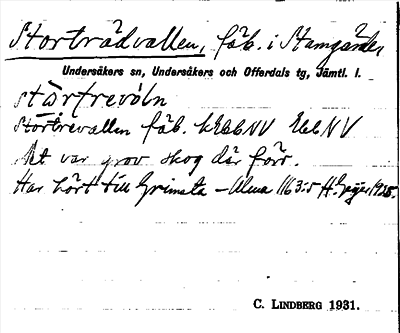 Storträdvallen, fäb. i Stamgärde
Undersåkers sn, Undersåkers och Offerdals tg, Jämtl. l.
stärtrevoln
Störtrevallen fäb. NV
Det var grov skog där förr.
Har hört till Grimsta – Alma 1163:5 H. Geijer 1925.
C. LINDBERG 1931.